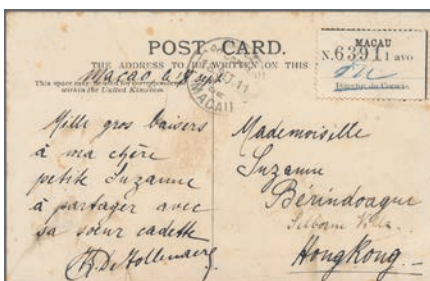 POST CARD.
THE ADDRESS TO BE WRITTEN ON THIS
This space may be used for correspondence
within the United Kingdom
MACAU
N. 6391 1 avo
Director do Correio
MACAU
Macao, le 18 sept
Mille gros baisers
à ma chère
petite Suzanne
à partager avec
sa soeur cadette
Mademoiselle
Suzanne
Bérindoague
Selborne Villa
HongKong.